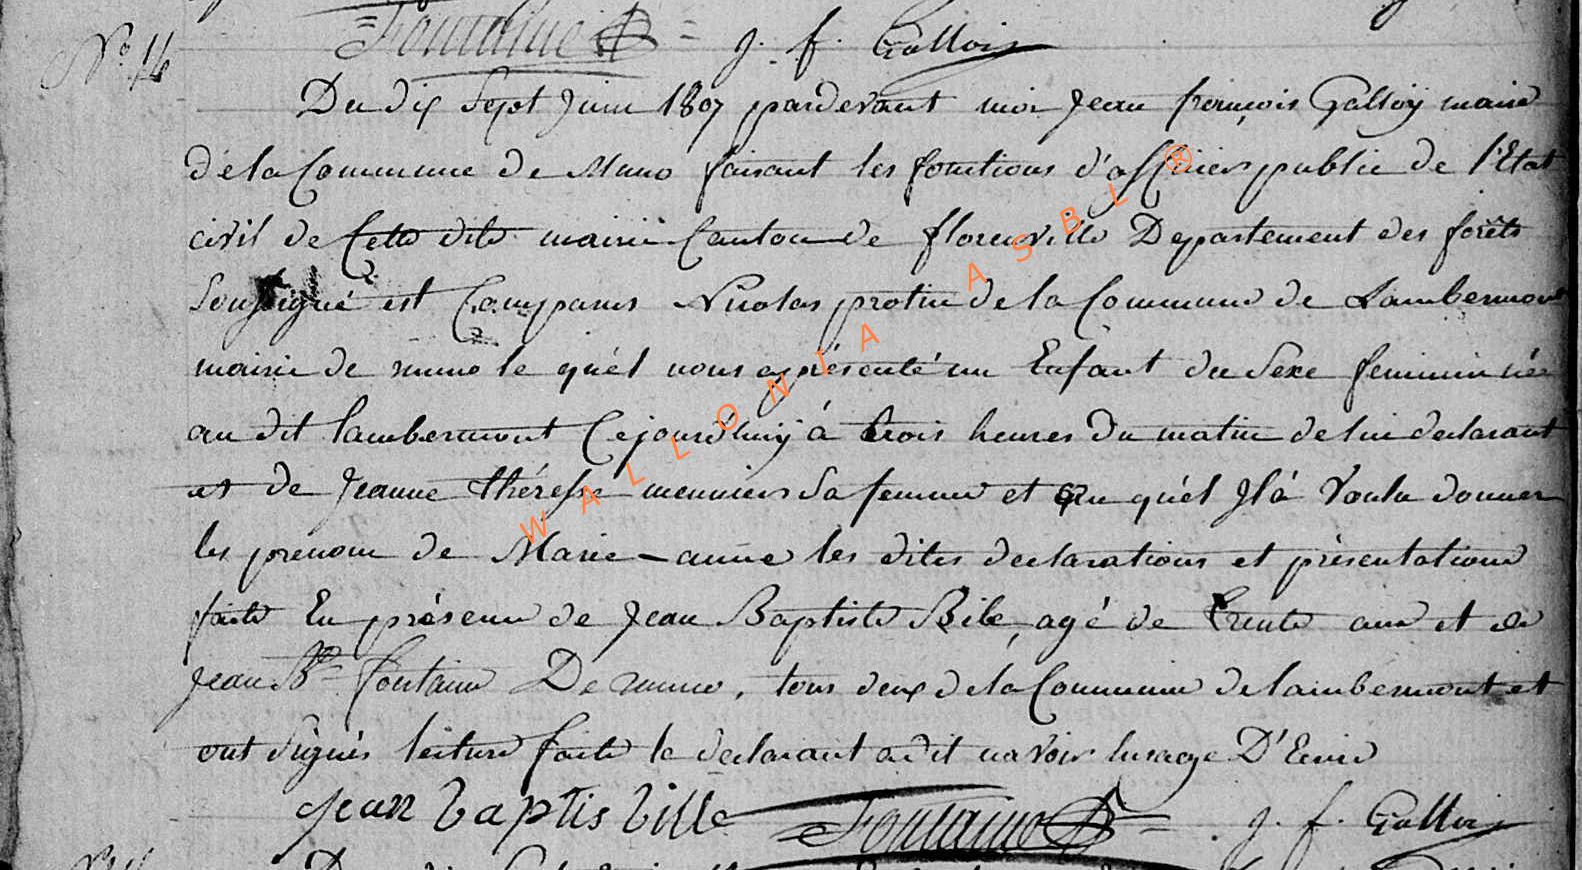 Fontaine JB = j. f. Gallois
N° 14
Du dix Sept Juin 1807 pardevant moi Jean françois Galloÿ maire
de la Commune de Muno faisant les fonctions d'officier public de l'Etat
civil de Cette dite mairie Canton de florenville Departement des forêts
Soussigné est Comparus Nicolas protin de la Commune de Lambermont
mairie de muno le quél nous a présenté un Enfant du Sexe feminin née
au dit lambermont Cejourdhuiÿ à trois heures du matin de lui declarant
et de Jeanne théresse meunier Sa femme et au quél Jlà Voulu donner
les prénom de Marie-anne les dites declarations et présentations
faite En présence de Jean Baptiste Bile, agé de trente ans et de
Jean Bte fontaine De muno, tous deux de la Commune de lambermont et
ont Signés lecture faite le declarant a dit navoir lusage D'Ecrire
jean baptis bille Fontaine JB = j. f. Gallois
WALLONIA ASBL ®